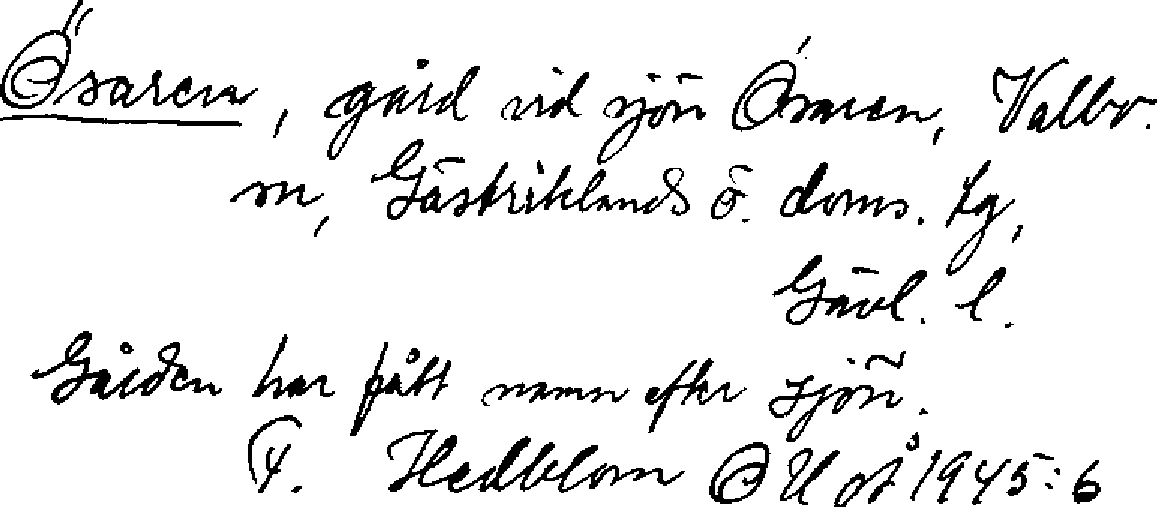 Ösaren, gård vid sjön Ösaren, Valbo
sn, Gästriklands ö. doms. tg,
Gävl. l.
Gården har fått namn efter sjön.
F. Hedblom OUÅ 1945:6